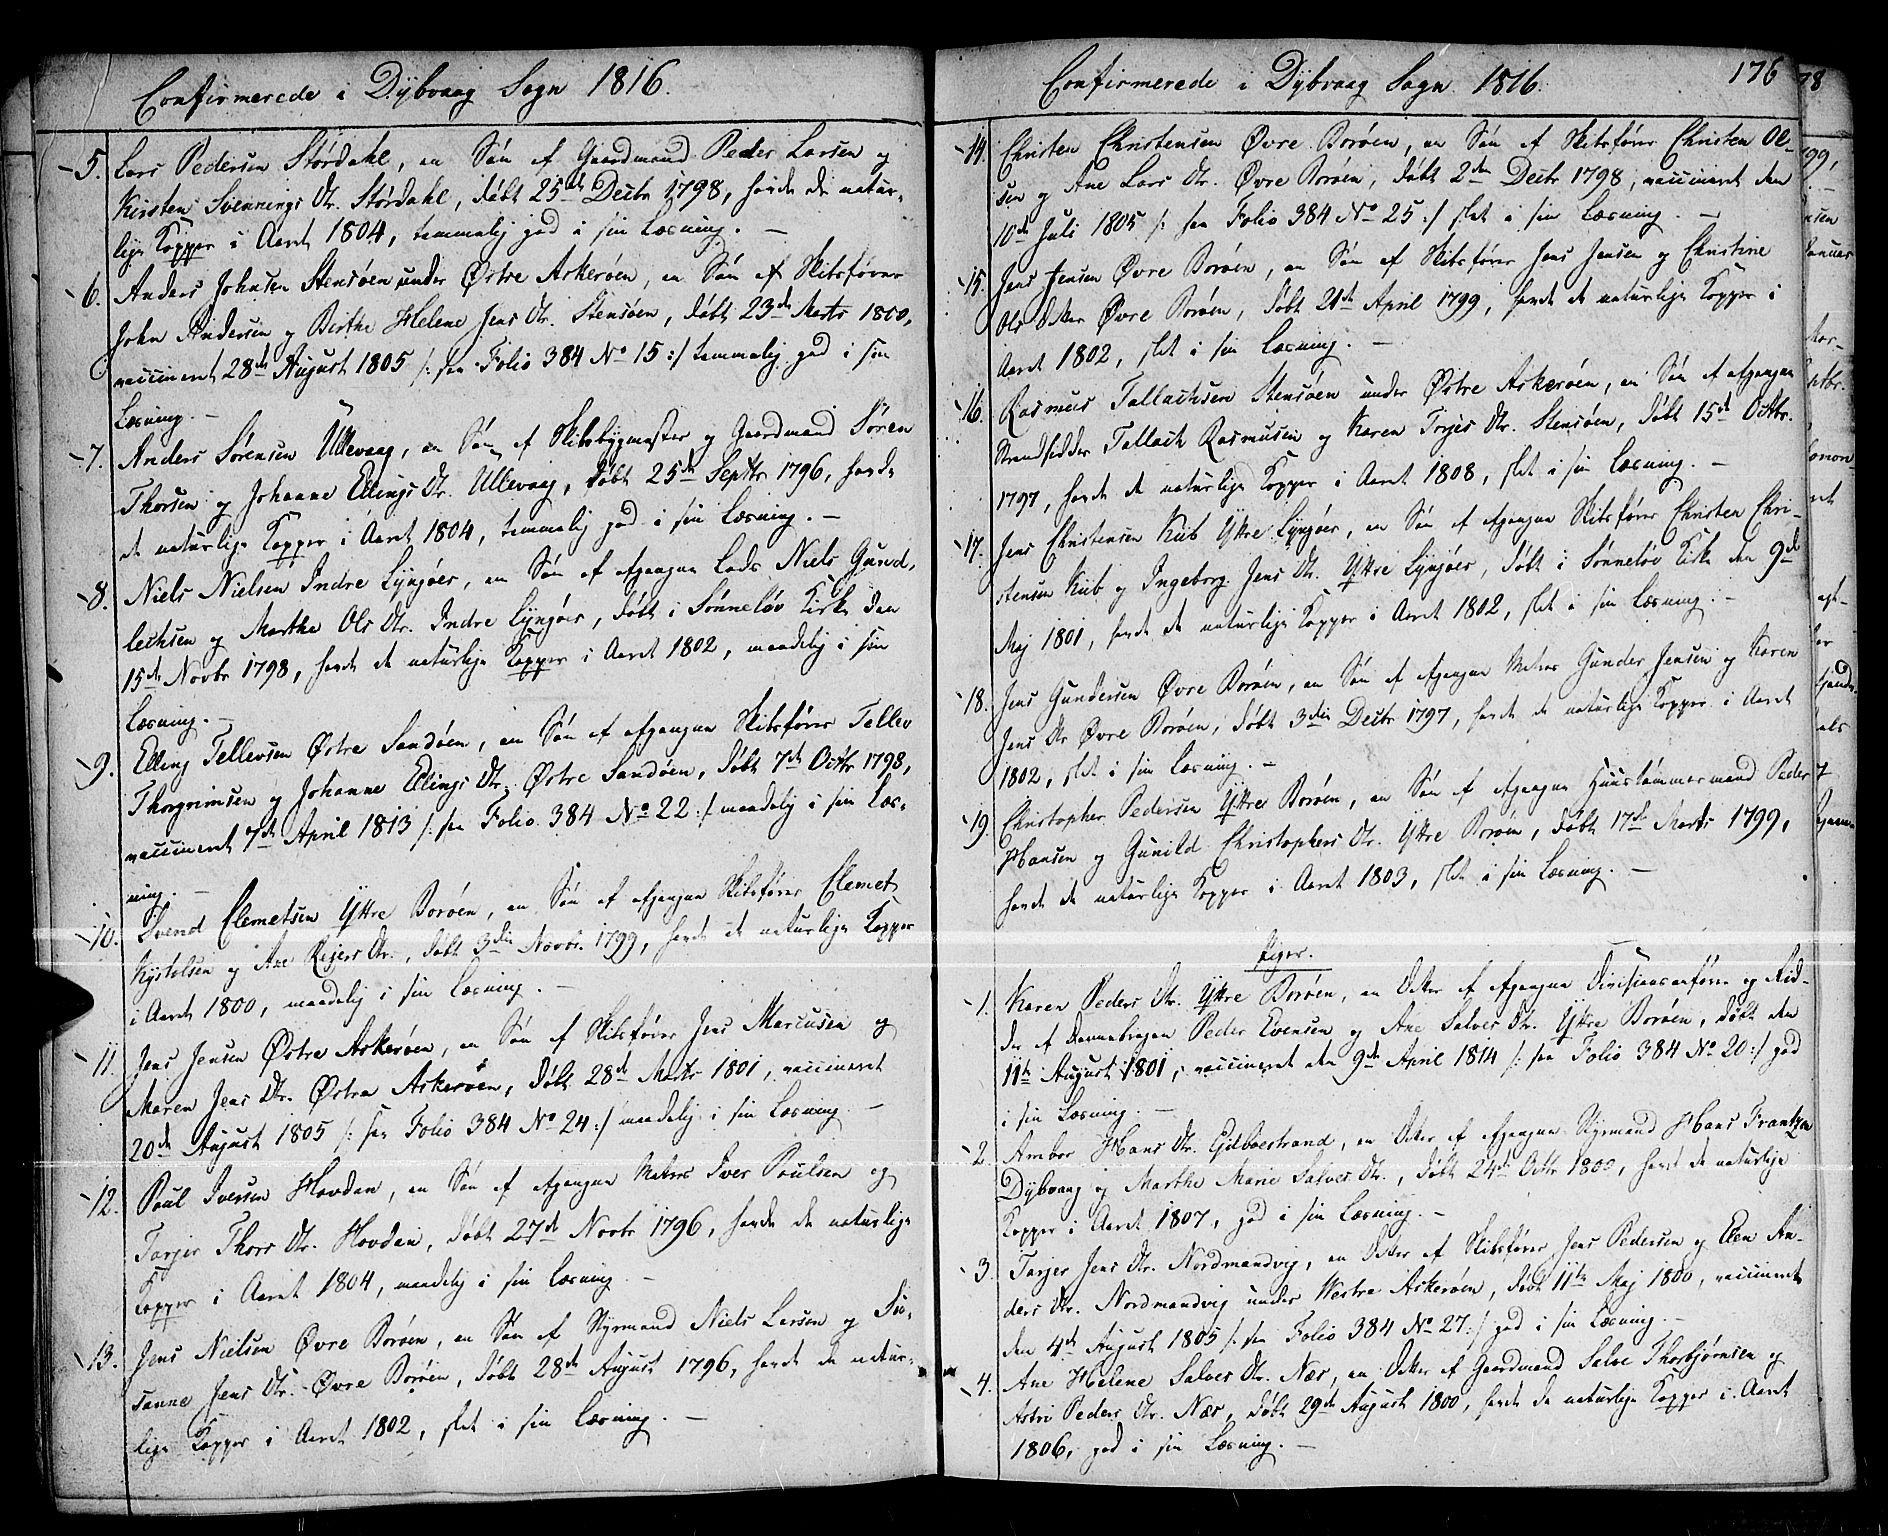 Confirmerede i Dybvaag Sogn 1816.
5. Lars Pedersen Stordahl, en Søn af Gaardmand Peder Larsen og
Kirsten Svennings Dtr. Stordahl, døbt 25de Decbr 1798, havde de natur-
lige Kopper i Aaret 1804, temmelig god i sin Læsning. —
6. Anders Johnsen Stensøen under Østre Askerøen, en Søn af Skibsfører
John Andersen og Birthe Helene Jens Dtr. Stensøen, døbt 23de Marts 1800,
vaccineret 28de August 1805 /: see Folio 384 No 15 :/ temmelig god i sin
Læsning. —
7. Anders Sørensen Ullevaag, en Søn af Skibsbygmester og Gaardmand Søren
Thorsen og Johanne Ellings Dtr. Ullevaag, døbt 25de Septbr 1796, havde
de naturlige Kopper i Aaret 1804, temmelig god i sin Læsning. —
8. Niels Nielsen Indre Lyngøer, en Søn af afgangne Lods Niels Gund-
lechsen og Marthe Ols Dtr. Indre Lyngøer, døbt i Sønneløv Kirke den
15de Novbr 1798, havde de naturlige Kopper i Aaret 1802, maadelig i sin
Læsning. —
9. Elling Tellevsen Østre Sandøen, en Søn af afgangne Skibsfører Tellev
Thorgrimsen og Johanne Ellings Dtr. Østre Sandøen, døbt 7de Octbr 1798,
vaccineret 7de April 1813 /: see Folio 384 No 22 :/ maadelig i sin Læs-
ning. —
10. Svend Clemetsen Yttre Borøen, en Søn af afgangne Skibsfører Clemet
Kystelsen og Ane Reiers Dtr., døbt 3die Novbr. 1799, havde de naturlige Kopper
i Aaret 1800, maadelig i sin Læsning. —
11. Jens Jensen Østre Askerøen, en Søn af Skibsfører Jens Marcusen og
Maren Jens Dtr. Østre Askerøen, døbt 28de Marts 1801, vaccineret
20de August 1805 /: see Folio 384 No 24 :/ maadelig i sin Læsning. —
12. Poul Iversen Hovdan, en Søn af afgangne Matros Iver Poulsen og
Tarjer Thors Dtr. Hovdan, døbt 27de Novbr 1796, havde de naturlige
Kopper i Aaret 1804, maadelig i sin Læsning. —
13. Jens Nielsen Øvre Borøen, en Søn af Styrmand Niels Larsen og Su-
sanne Jens Dtr. Øvre Borøen, døbt 28de August 1796, havde de natur-
lige Kopper i Aaret 1802, slet i sin Læsning. —
Confirmerede i Dybvaag Sogn 1816. 176
14. Christen Christensen Øvre Borøen, en Søn af Skibsfører Christen Ol-
sen og Ane Lars Dtr. Øvre Borøen, døbt 2den Decbr 1798, vaccineret den
10de Juli 1805 /: see Folio 384 No 25 :/ slet i sin Læsning. —
15. Jens Jensen Øvre Borøen, en Søn af Skibsfører Jens Jensen og Christine
Ols Datter Øvre Borøen, døbt 21de April 1799, havde de naturlige Kopper i
Aaret 1802, slet i sin Læsning. —
16. Rasmus Tallachsen Stensøen under Østre Askerøen, en Søn af afgangne
Strandsidder Tallach Rasmusen og Karen Terjes Dtr. Stensøen, døbt 15de Octbr.
1797, havde de naturlige Kopper i Aaret 1808, slet i sin Læsning. —
17. Jens Christensen Kiib Yttre Lyngøer, en Søn af afgangne Skibsfører Christen Chri-
stensen Kiib og Ingeborg Jens Dtr. Yttre Lyngøer, døbt i Sønneløv Kirke den 9de
Maj 1801, havde de naturlige Kopper i Aaret 1802, slet i sin Læsning. —
18. Jens Gundersen Øvre Borøen, en Søn af afgangne Matros Gunder Jensen og Karen
Jens Dtr Øvre Borøen, døbt 3die Decbr 1797, havde de naturlige Kopper i Aaret
1802, slet i sin Læsning. —
19. Christopher Pedersen Yttre Borøen, en Søn af afgangne Huustømmermand Peder
Hansen og Gunild Christophers Dtr. Yttre Borøen, døbt 17de Marts 1799,
havde de naturlige Kopper i Aaret 1803, slet i sin Læsning. —
Piger.
1. Karen Peders Dtr. Yttre Borøen, en Datter af afgangne Divisionsanfører og Rid-
der af Dannebrogen Peder Evensen og Ane Salves Dtr. Yttre Borøen, døbt den
11te August 1801, vaccineret den 9de April 1814 /: see Folio 384 No 20 :/ god
i sin Læsning. —
2. Ambor Hans Dtr. Gjelboestrand, en Datter af afgangne Styrmand Hans Frantzen
Dybvaag og Marthe Marie Salves Dtr., døbt 24de Octbr 1800, havde de naturlige
Kopper i Aaret 1807, god i sin Læsning. —
3. Tarjer Jens Dtr. Nordmandvig, en Datter af Skibsfører Jens Pedersen og Elen An-
ders Dtr. Nordmandvig under Westre Askerøen, døbt 11te Maj 1800, vaccineret
den 4de August 1805 /: see Folio 384 No 27 :/ god i sin Læsning. —
4. Ane Helene Salves Dtr. Næs, en Datter af Gaardmand Salve Thorbjørnsen og
Astri Peders Dtr. Næs, døbt 29de August 1800, havde de naturlige Kopper i Aaret
1806, god i sin Læsning. —